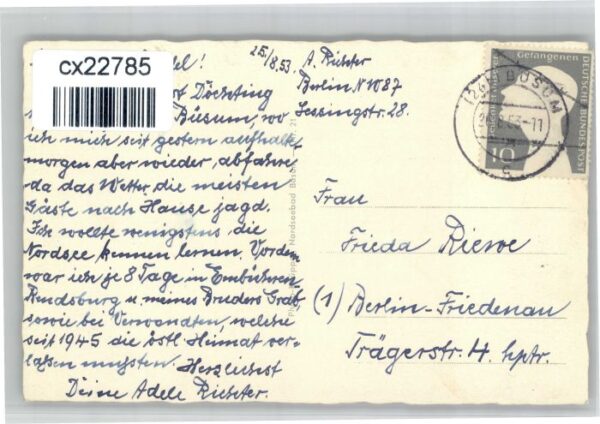 cx22785
25./8.53. A. Richter
Berlin N 1087
Lessingstr. 28.
Büsum, wo
ich mich seit gestern aufhalte,
morgen aber wieder, abfahre
da das Wetter, die meisten
Gäste nach Hause jagd.
Ich wollte wenigstens die
Nordsee kennen lernen. Vordem
war ich je 8 Tage in Embühren-
Rendsburg u. meines Bruders Grab
sowie bei Verwandten, welche
seit 1945 die östl. Heimat ver-
lassen mussten. Herzlichst
Deine Adele Richter.
Nordseebad
BÜSUM
Gefangenen
DEUTSCHE BUNDESPOST
10
Frau
Frieda Riewe
(1) Berlin-Friedenau
Trägerstr. 4. hptr.